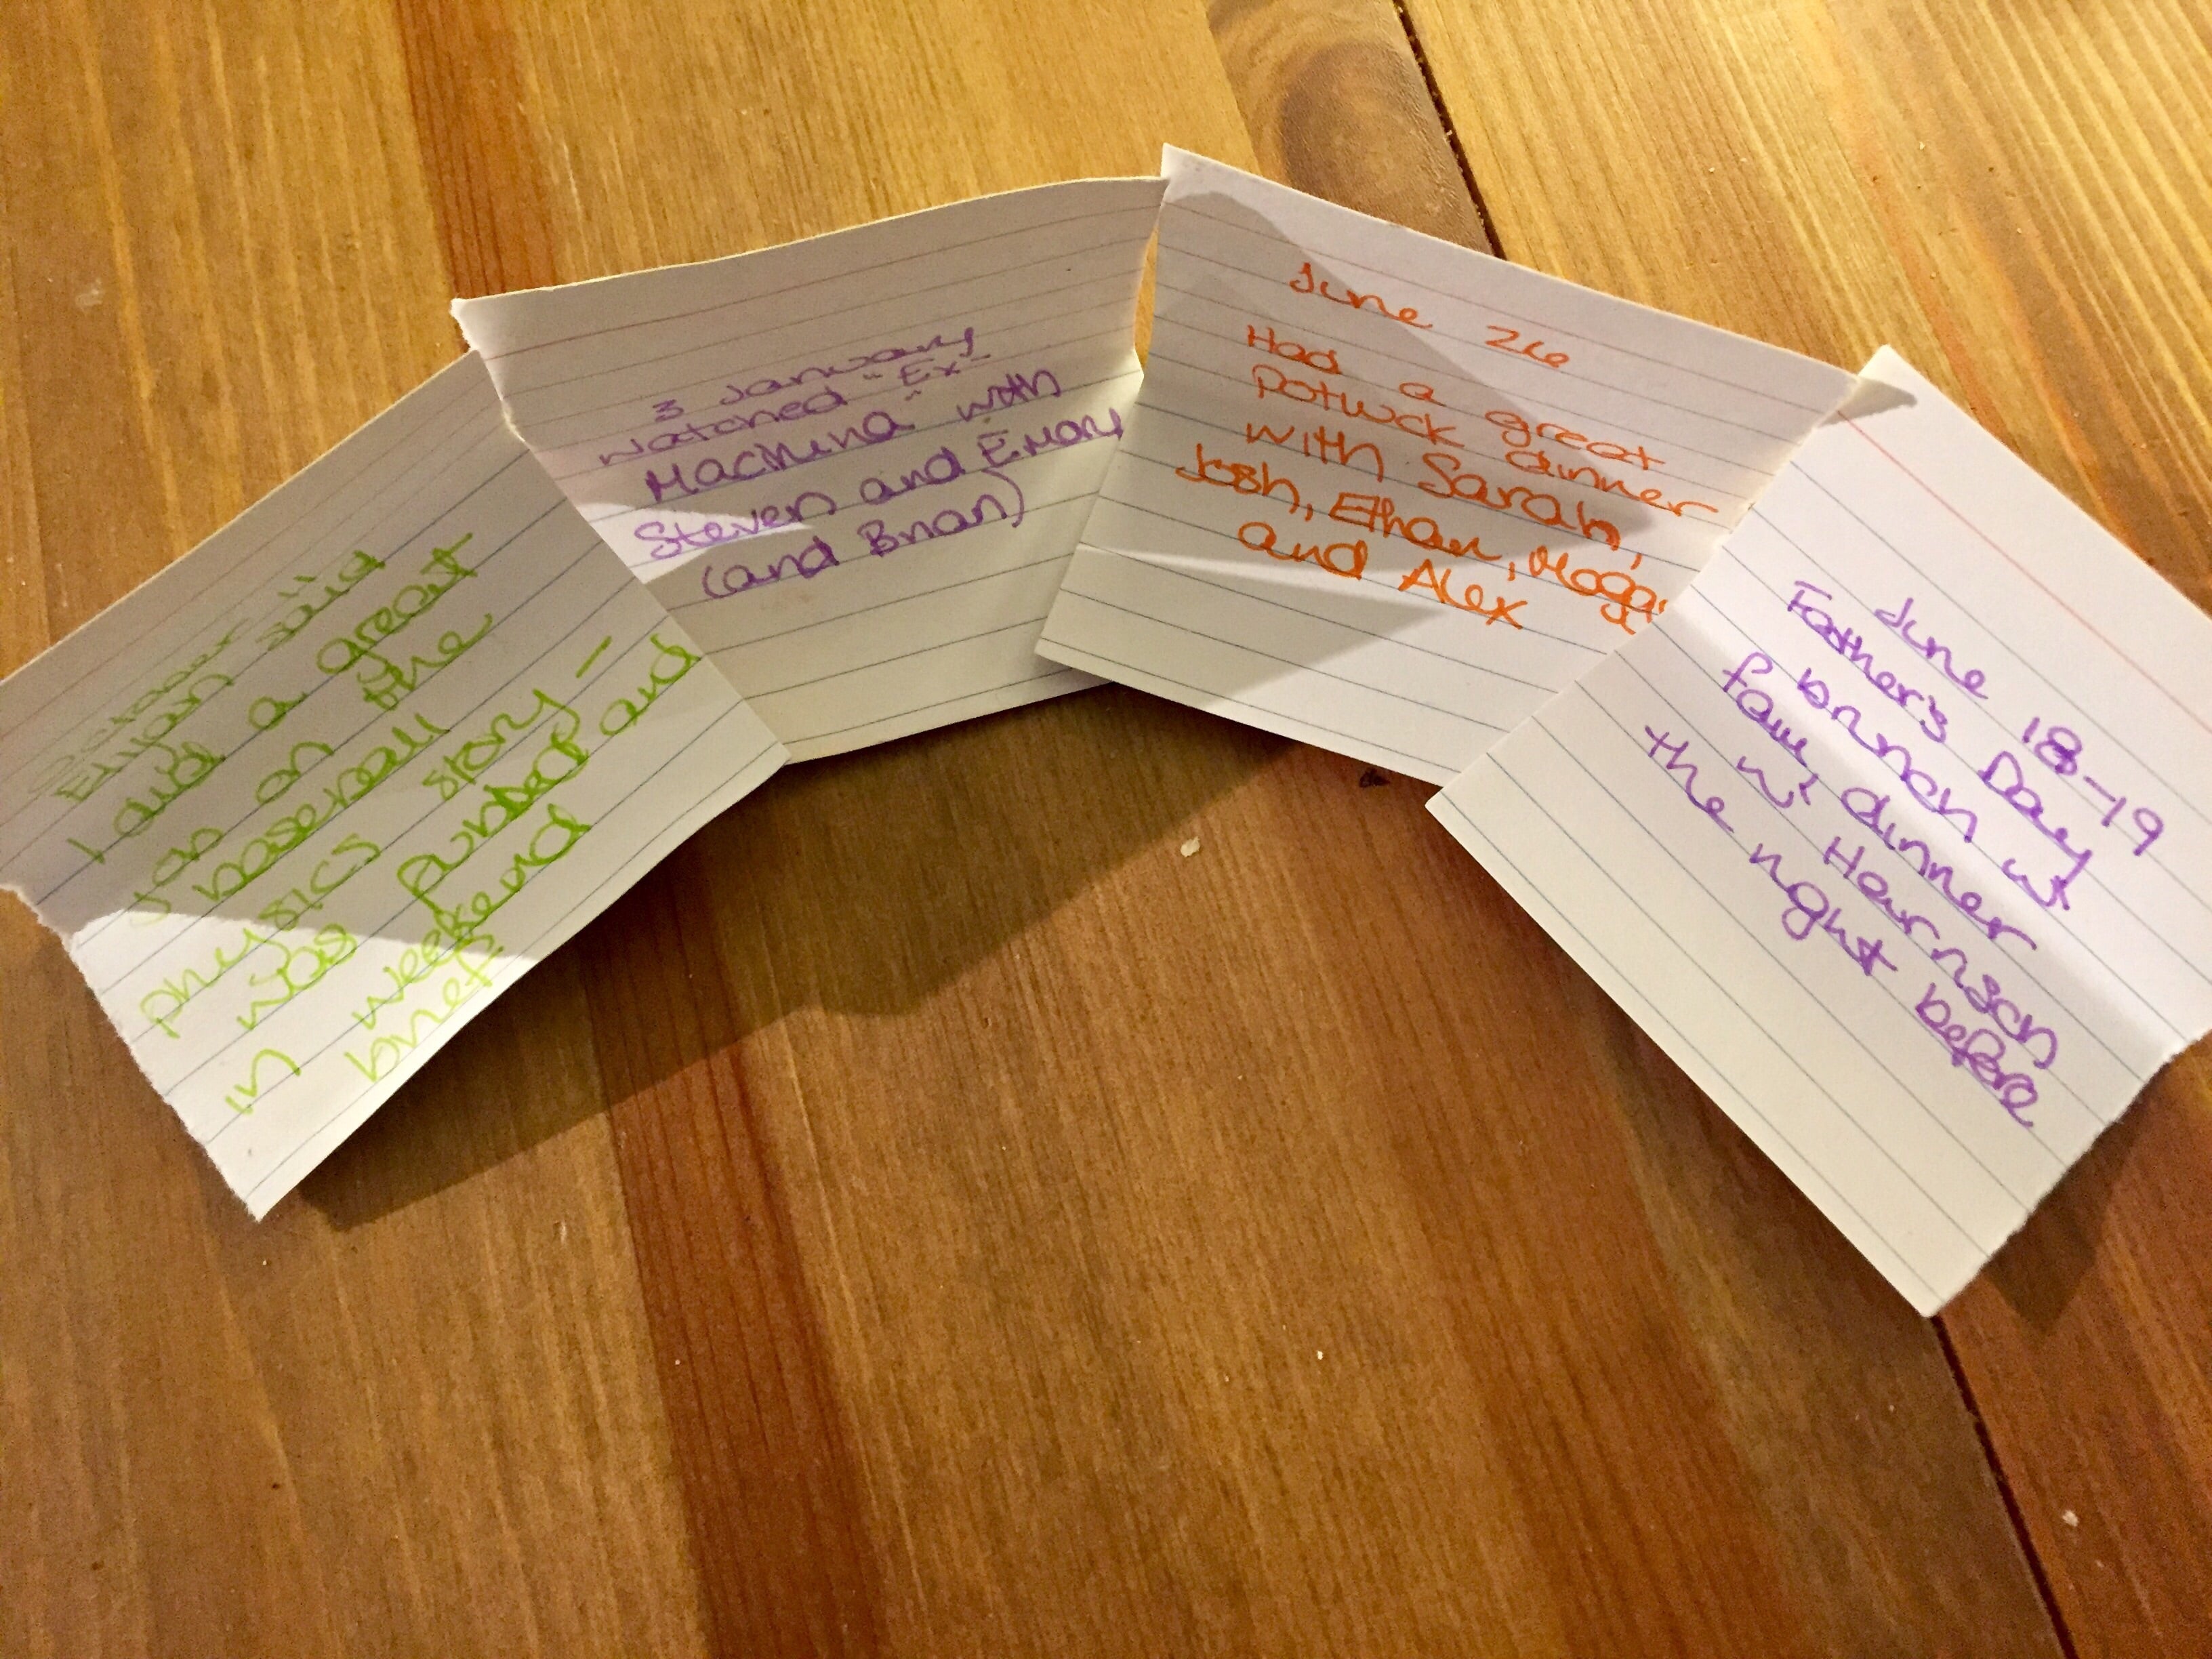 October
Elijah said
I did a great
job on the
baseball
physics story –
was punded and
in weekend
brief
3 January
Watched "Ex
Machina" with
Steven and E.Mary
(and Brian)
June 26
Had a great
Potluck dinner
with Sarah,
Josh, Ethan,
and Alex
June 18-19
Father's Day
brunch w/
fam, dinner
w/ Harrison
the night before